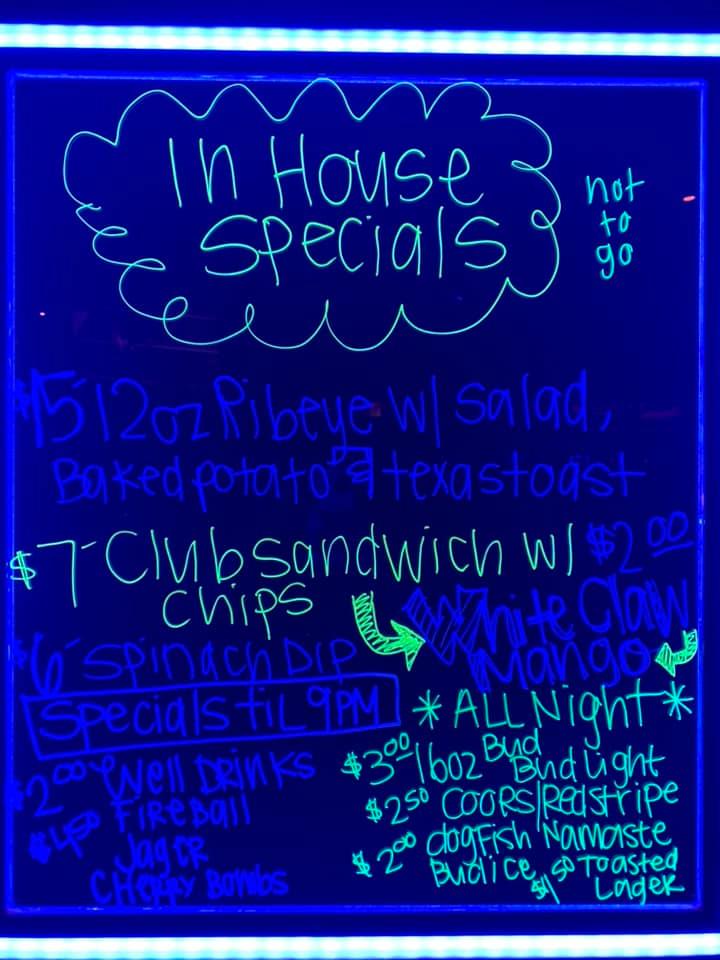 In House
Specials
not
to
go
$15 12oz Ribeye w/ salad,
Baked potato & texas toast
$7 Club sandwich w/
chips
$2.00
White Claw
Mango
$6 Spinach Dip
Specials til 9PM
$2.00 Well DRINKS
FIREBall
JagER
CHERRY BOMBS
* ALL Night *
$3.00 16oz Bud
Bud Light
$2.50 COORS/Redstripe
dogFish Namaste
$2.00 Budice
Toasted
Lager